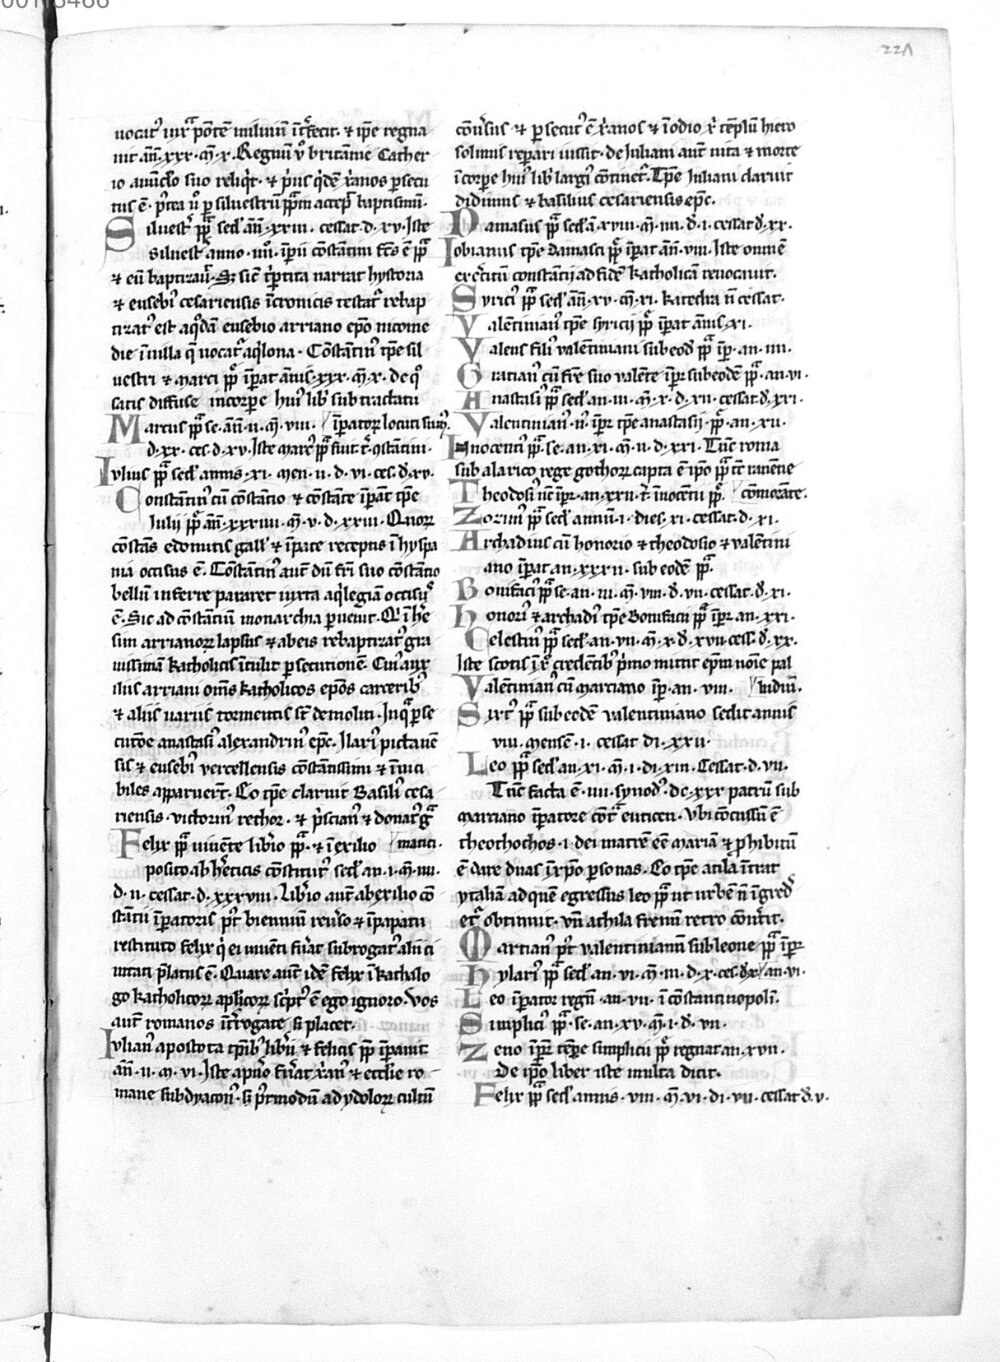 00113466
221
uocat᷑ iuxᷓ pōtē miluiū īt̄fecit. ⁊ ip̄e regna
uit añ. xxx. m̄. x. Regnū ů britānie Cather
io auūclo suo reliq̇t. ⁊ p̄us q̇dē xp̄anos psecu
tus ē. p̄tea ů ꝑ siluestrū pp̄m accep̄ baptismū.
Siluest᷑ pp̄ sed᷑ añ. xxiii. cessat. d. xv. Iste
siluest᷑ anno. iiii. īp̄ii cōstātini fc̄s ē pp̄
⁊ eū baptizau᷑. S; sic̄ t̄ptita narrat hystoria
⁊ eusebi᷒ cesariensis īcronicis testat᷑ rebap
tizat᷒ est aq̇dā eusebio arriano ep̄o nicome
die ī uilla q̄ uocat᷑ aq̇lona. Cōstātin᷒ tp̄e sil
uestri ⁊ marci pp̄ īp̄at ānis. xxx. m̄. x. de q̊
satis diffuse incorpe hui᷒ libri subtractatū
Marcus pp̄ se. añ. ii. m̄. viii. īp̄ator locuti sum᷒.
d. xx. ces. d. xv. Iste marc᷒ pp̄ fuit t̄. ꝯstātini.
Iulius pp̄ sed᷑ annis. xi. men. ii. d. vi. ces. d. xv.
Constātin᷒ cū cōstātio ⁊ cōstāte īp̄at tp̄e
Iulii pp̄ añ. xxxiiii. m̄. v. d. xxiii. Quoꝝ
cōstās edomitis gall᷑ ⁊ īpate receptis ī hyspa
nia occisus ē. Cōstātin᷒ aut̄ dū fr̄i suo cōstātio
bellū inferre pararet iuxta aq̇legiā occisu᷒
ē. Sic ad cōstātiū monarchia puenit. Q̇ ī he
sim arrianoꝝ lapsus ⁊ abeis rebaptizat᷒ gᷓ
uissimā katholicis ītulit psecutionē. Cui᷒ aux
iliis arriani om̄s katholicos ep̄os carcerib᷒
⁊ aliis uariis tormentis st̄ demoliti. In q̄ pse
cutōe anastasi᷒ alexandrin᷒ ep̄c. Ilari᷒ pictauē
sis ⁊ eusebi᷒ vercellensis cōstātissimi ⁊ īuici
biles apparuer̄t. Eo tp̄e claruit Basili᷒ cesa
riensis. victorin᷒ rethor. ⁊ p̄scian᷒ ⁊ donat᷒ gᷓ
Felix pp̄ uiuēte libio pp̄. ⁊ ī exilio matici.
posito ab h̄eticis cōstitut᷒ sed᷑ an. i. m̄. iiii.
d. ii. cessat. d. xxxviii. Libio aut̄ abexilio cō
stātii īp̄atoris p᷑t biennium reuso ⁊ īpapatu
restituto felix q̇ ei uiuēti fu᷑at subrogat᷒ alñ ci
uitati p̄lat᷒ ē. Quare aut̄ idē felix ī kathalo
go katholicoꝝ aplicoꝝ sc̄pt᷒ ē ego ignoro. Vos
aut̄ romanos īt̄rogate si placet.
Iulian᷒ apostota tp̄ib᷒ libii ⁊ felicis pp̄ īp̄auit
añ. ii. m̄. vi. Iste ap̄io fu᷑at xp̄an᷒ ⁊ eccl̄ie ro
mane subdyacon᷒. s; p᷑tmodū ad ydoloꝝ cultū
cōu᷑sus ⁊ psecut᷒ ē xp̄anos ⁊ ī odio xp̄i tēplū hiero
solimis repari iussit. de Iuliani aut̄ uita ⁊ morte
ī corpe hui᷒ lib᷑ larg᷒ ꝯtinet᷑. Tp̄e Iuliani claruit
didimus ⁊ basilius cesariensis ep̄c.
Damasus pp̄ sed᷑ añ. xviii. m̄. iii. d. i. cessat d. xx.
Iobianus tp̄e damasi pp̄ īp̄at añ. viii. Iste omnē
exercitū constātij ad fidē katholicā reuocauit.
Syrici᷒ pp̄ sed᷑ añ. xv. m̄. xi. katedra n̄ cessat.
Valētinian᷒ tp̄e syricij pp̄ īp̄at ānis. xi.
Valens fili᷒ valentiniani sub eod̄ pp̄ īp̄. an. iiii.
Gratian᷒ cū fr̄e suo valēte īp̄at subeodē pp̄. an. vi.
Anastasi᷒ pp̄ sed᷑ an. iii. m̄. x. d. xii. cessat d. xxi.
Valentinian᷒. ii᷒. īp̄at tp̄e anastasij pp̄. an. xii.
Innocenti᷒ pp̄. se. an. xi. m̄. ii. d. xxi. Tūc roma
sub alarico rege gothoꝝ capta ē ip̄o pp̄ t̄c rauēne
Theodosi᷒ īp̄at. an. xxii. t̄. inocētii pp̄. cōmorāte.
Zozim᷒ pp̄ sed᷑ annū. i. dies. xi. cessat. d. xi.
Archadius cū honorio ⁊ theodosio ⁊ valētini
ano īp̄at an. xxxii. sub eodē pp̄.
Bonifaci᷒ pp̄ se. an. iii. m̄. viii. d. vii. cessat. d. xi.
Honori᷒ ⁊ archadi᷒ tp̄e Bonifacii pp̄ īp̄at. an. xxi.
Celestin᷒ pp̄ sed᷑. an. vii. m̄. x. d. xvii. cess. d. xx.
Iste scotis ī xp̄o credētib᷒ p̄mo mittit ep̄m noīe pal
Valentinian᷒ cū marciano īp̄. an. viii. ladiū.
Sixt᷒ pp̄ sub eodē valentiniano sedit annis
viii. mensē. i. cessat di. xxii.
Leo pp̄ sed᷑. an. xi. m̄. i. di. xiii. Cessat. d. vii.
Tūc facta ē. iiii. synod᷒. dc. xxx patrū sub
marciano īp̄atore cōt᷑ euticen. Vbi cōcussū ē
theothochos. i. dei matrē eē mariā ⁊ ꝓhibitū
ē dare duas ī xp̄o ꝑsonas. Eo tp̄e atila ītrat
ytaliā ad quē egressus leo pp̄ ut urbē n̄ īgred᷑
et᷑ obtinuit. vn̄ achila frenū retro cōu᷑tit.
Martian᷒ p᷑t valentinianū sub leone pp̄ īp̄at
Hylari᷒ pp̄ sed᷑. an. vi. m̄. iii. d. x. ces. d. x an. vi.
Leo īp̄ator regn̄. an. vii. ī constantinopoli.
Simplici᷒ pp̄. se. an. xv. m̄. i. d. vii.
Zeno īp̄at tēpe simplicii pp̄ regnat an. xvii.
de ip̄o liber iste multa dicit.
Felix pp̄ sed᷑ annis. viii. m̄. vi. di. vii. cessat d. v.